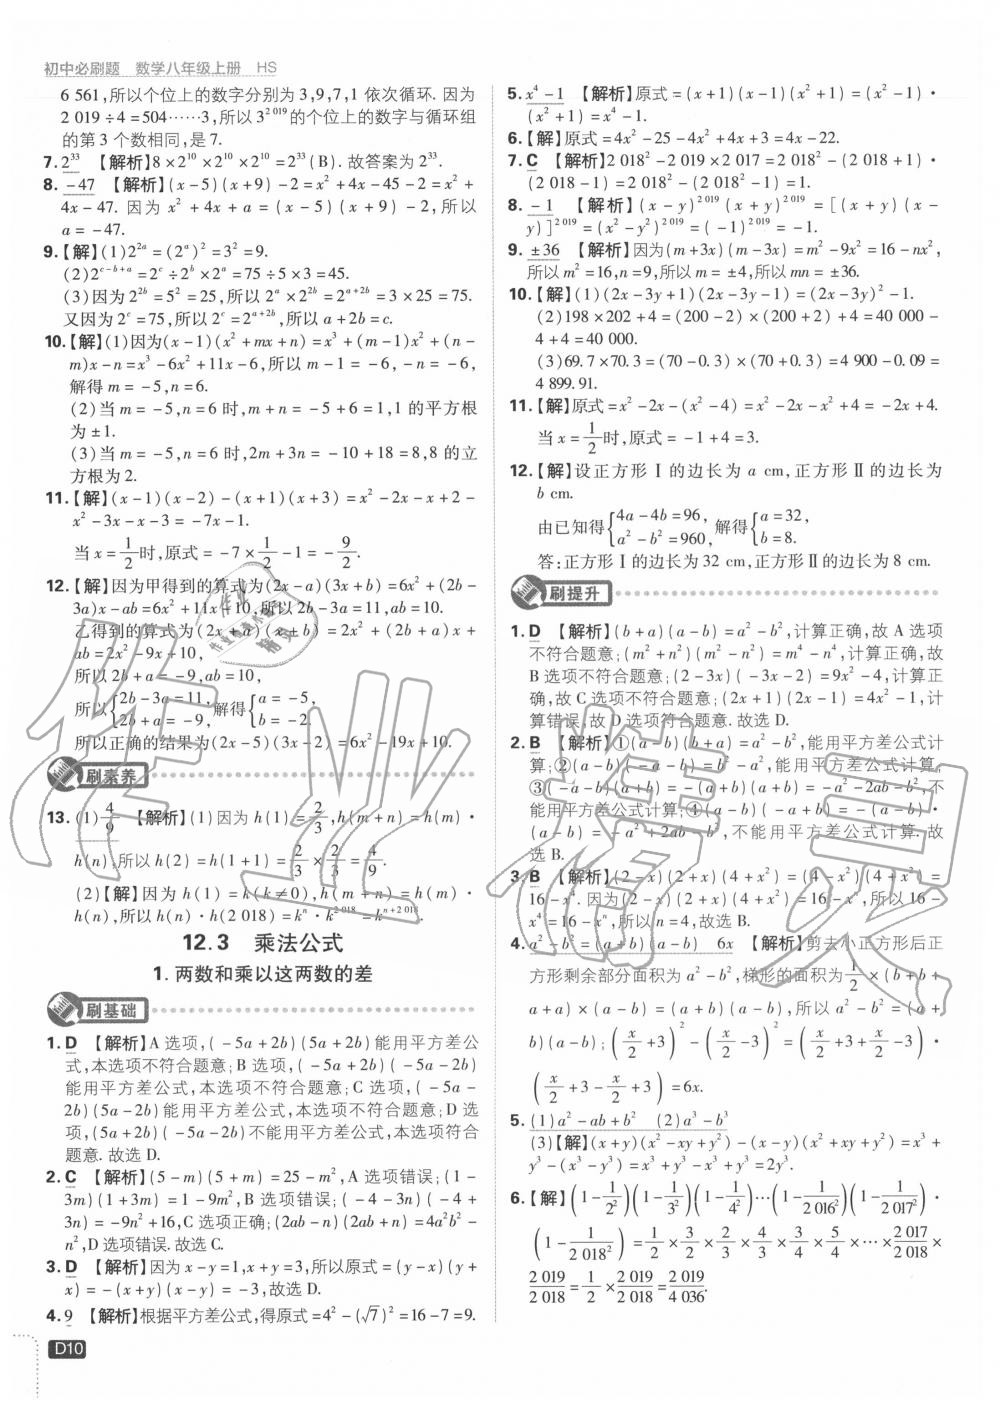 初中必刷题 数学八年级上册 HS
6 561,所以个位上的数字分别为 3,9,7,1 依次循环. 因为
2 019÷4=504……3,所以 3^{2 019}的个位上的数字与循环组
的第 3 个数相同,是 7.
7. 2^{33} 【解析】8×2^{10}×2^{10}×2^{10}=2^{33}(B). 故答案为 2^{33}.
8. -47 【解析】(x-5)(x+9)-2=x²+4x-45-2=x²+
4x-47. 因为 x²+4x+a=(x-5)(x+9)-2,所以
a=-47.
9.【解】(1)2^{2a}=(2^a)²=3²=9.
(2)2^{c-b+a}=2^c÷2^b×2^a=75÷5×3=45.
(3)因为 2^{2b}=5²=25,所以 2^a×2^{2b}=2^{a+2b}=3×25=75.
又因为 2^c=75,所以 2^c=2^{a+2b},所以 a+2b=c.
10.【解】(1)因为(x-1)(x²+mx+n)=x³+(m-1)x²+(n-
m)x-n=x³-6x²+11x-6,所以 m-1=-6,-n=-6,
解得 m=-5,n=6.
(2)当 m=-5,n=6 时,m+n=-5+6=1,1 的平方根
为±1.
(3)当 m=-5,n=6 时,2m+3n=-10+18=8,8 的立
方根为 2.
11.【解】(x-1)(x-2)-(x+1)(x+3)=x²-2x-x+2-
x²-3x-x-3=-7x-1.
当 x=1/2时,原式=-7×1/2-1=-9/2.
12.【解】因为甲得到的算式为(2x-a)(3x+b)=6x²+(2b-
3a)x-ab=6x²+11x-10,所以 2b-3a=11,ab=10.
乙得到的算式为(2x+a)(x+b)=2x²+(2b+a)x+
ab=2x²-9x+10,
所以 2b+a=-9,ab=10,
所以{2b-3a=11, 2b+a=-9,解得{a=-5, b=-2.
所以正确的结果为(2x-5)(3x-2)=6x²-19x+10.
刷素养
13. (1)4/9 【解析】(1)因为 h(1)=2/3,h(m+n)=h(m)·
h(n),所以 h(2)=h(1+1)=2/3×2/3=4/9.
(2)【解】因为 h(1)=k(k≠0),h(m+n)=h(m)·
h(n),所以 h(n)·h(2 018)=k^n·k^{2 018}=k^{n+2 018}.
12.3 乘法公式
1. 两数和乘以这两数的差
刷基础
1. D 【解析】A 选项,(-5a+2b)(5a+2b)能用平方差公
式,本选项不符合题意;B 选项,(-5a+2b)(-5a-2b)
能用平方差公式,本选项不符合题意;C 选项,(-5a-
2b)(5a-2b)能用平方差公式,本选项不符合题意;D 选
项,(5a+2b)(-5a-2b)不能用平方差公式,本选项符合
题意. 故选 D.
2. C 【解析】(5-m)(5+m)=25-m²,A 选项错误;(1-
3m)(1+3m)=1-9m²,B 选项错误;(-4-3n)(-4+
3n)=-9n²+16,C 选项正确;(2ab-n)(2ab+n)=4a²b²-
n²,D 选项错误. 故选 C.
3. D 【解析】因为 x-y=1,x+y=3,所以原式=(y-x)(y+
x)=-(x+y)(x-y)=-3,故选 D.
4. 9 【解析】根据平方差公式,得原式=4²-(√7)²=16-7=9.
5. x⁴-1 【解析】原式=(x+1)(x-1)(x²+1)=(x²-1)·
(x²+1)=x⁴-1.
6.【解】原式=4x²-25-4x²+4x+3=4x-22.
7. C 【解析】2 018²-2 019×2 017=2 018²-(2 018+1)·
(2 018-1)=2 018²-(2 018²-1)=1.
8. -1 【解析】(x-y)^{2 019}(x+y)^{2 019}=[(x+y)(x-
y)]^{2 019}=(x²-y²)^{2 019}=(-1)^{2 019}=-1.
9. ±36 【解析】因为(m+3x)(m-3x)=m²-9x²=16-nx²,
所以 m²=16,n=9,所以 m=±4,所以 mn=±36.
10.【解】(1)(2x-3y+1)(2x-3y-1)=(2x-3y)²-1.
(2)198×202+4=(200-2)×(200+2)+4=40 000-
4+4=40 000.
(3)69.7×70.3=(70-0.3)×(70+0.3)=4 900-0.09=
4 899.91.
11.【解】原式=x²-2x-(x²-4)=x²-2x-x²+4=-2x+4.
当 x=1/2时,原式=-1+4=3.
12.【解】设正方形Ⅰ的边长为 a cm,正方形Ⅱ的边长为
b cm.
由已知得{4a-4b=96, a²-b²=960,解得{a=32, b=8.
答:正方形Ⅰ的边长为 32 cm,正方形Ⅱ的边长为 8 cm.
刷提升
1. D 【解析】(b+a)(a-b)=a²-b²,计算正确,故 A 选项
不符合题意;(m²+n²)(m²-n²)=m⁴-n⁴,计算正确,故
B 选项不符合题意;(2-3x)(-3x-2)=9x²-4,计算正
确,故 C 选项不符合题意;(2x+1)(2x-1)=4x²-1,计
算错误,故 D 选项符合题意. 故选 D.
2. B 【解析】①(a-b)(b+a)=a²-b²,能用平方差公式计
算;②(a-b)(-a-b)=-a²+b²,能用平方差公式计算;
③(-a-b)(a+b)=-(a+b)(a+b)=-a²-2ab-b²,不
能用平方差公式计算;④(a-b)(-a+b)=-(a-b)·
(a-b)=-a²+2ab-b²,不能用平方差公式计算. 故
选 B.
3. B 【解析】(2-x)(2+x)(4+x²)=(4-x²)(4+x²)=
16-x⁴. 因为(2-x)(2+x)(4+x²)=16-x^n,所以 16-
x⁴=16-x^n,所以 n=4,故选 B.
4. a²-b²=(a+b)(a-b) 6x 【解析】剪去小正方形后正
方形剩余部分面积为 a²-b²,梯形的面积为1/2×(b+b+
a+a)×(a-b)=(a+b)(a-b),所以 a²-b²=(a+
b)(a-b);(x/2+3)²-(x/2-3)²=(x/2+3+x/2-3)·
(x/2+3-x/2+3)=6x.
5. (1)a²-ab+b² (2)a³-b³
(3)【解】(x+y)(x²-xy+y²)-(x-y)(x²+xy+y²)=x³+
y³-(x³-y³)=x³+y³-x³+y³=2y³.
6.【解】(1-1/2²)(1-1/3²)(1-1/4²)…(1-1/2 016²)(1-1/2 017²)·
(1-1/2 018²)=1/2×3/2×2/3×4/3×3/4×5/4×…×2 017/2 018×
2 019/2 018=1/2×2 019/2 018=2 019/4 036.
D10
作业精灵